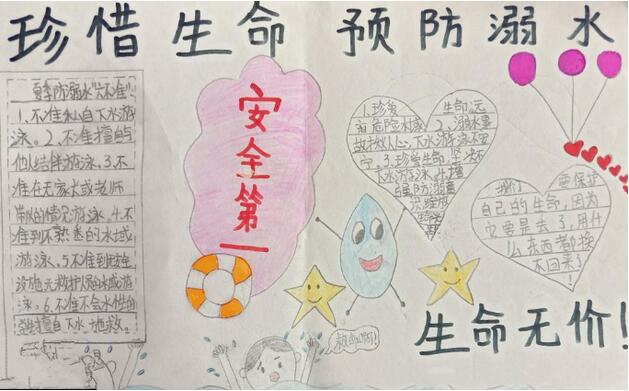 珍惜生命 预防溺水
夏季防溺水“六不准”:
1.不准私自下水游
泳。2.不准擅自与
他人结伴游泳.3.不
准在无家长或老师
带队的情况游泳.4.不
准到不熟悉的水域
游泳.5.不准到无
设施无救护人员的水域游
泳.6.不准不会水性的
学生擅自下水施救.
安全第一
1.珍爱 生命远
离危险水域.2.溺水事
故揪人心,下水游泳不安
宁.3.珍爱生命,坚决不
下水游泳.4.增
强防溺意
识
我们 要保护
自己的生命,因为
它要是去了,用什
么东西都换
不回来了!
救命啊!
生命无价!